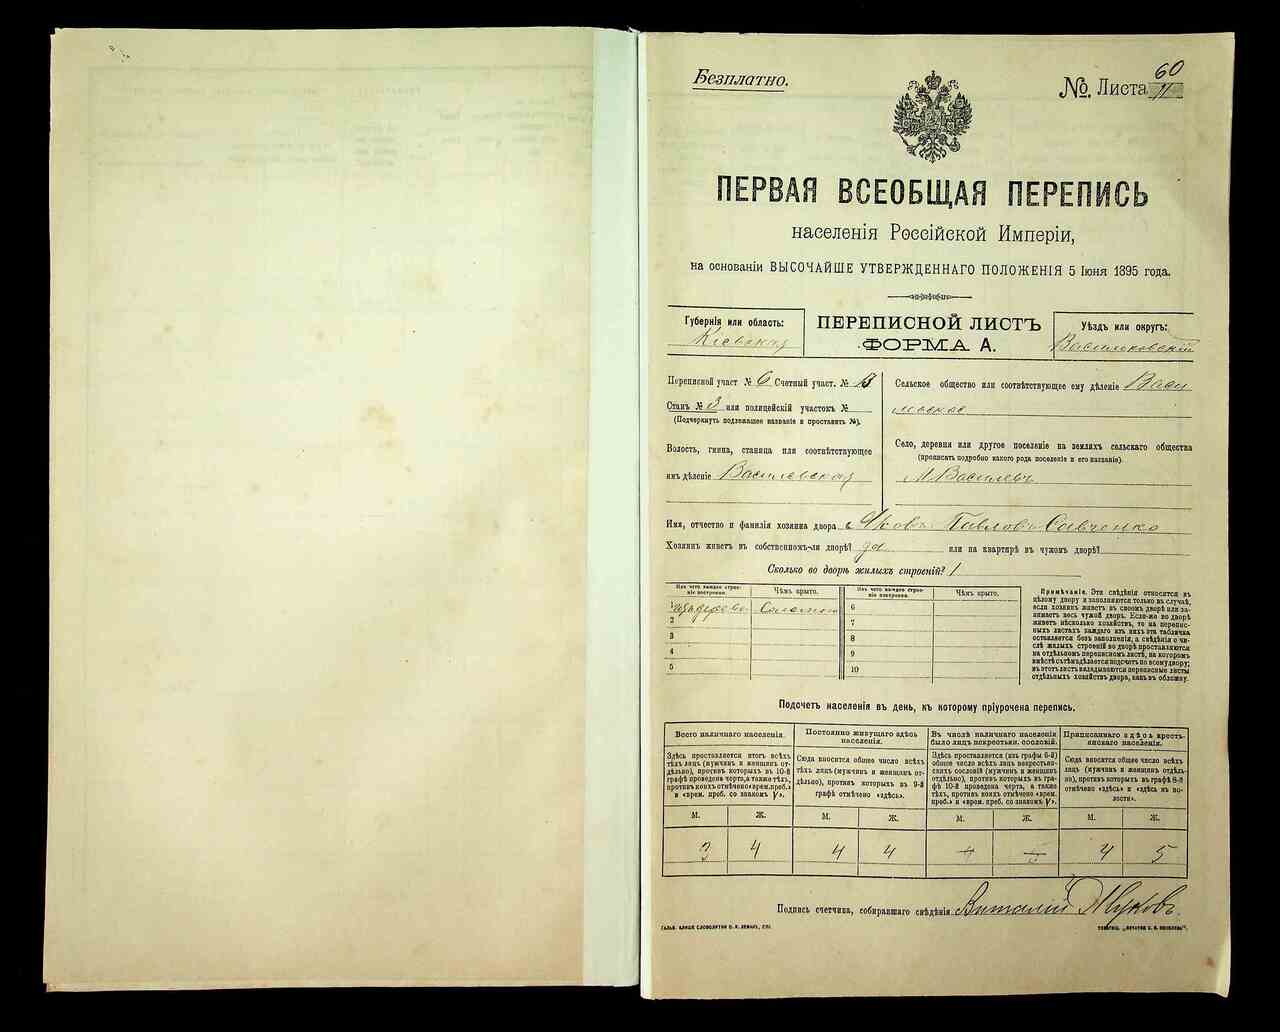 Безплатно.
№. Листа 60
ПЕРВАЯ ВСЕОБЩАЯ ПЕРЕПИСЬ
населенія Россійской Имперіи,
на основаніи ВЫСОЧАЙШЕ УТВЕРЖДЕННАГО ПОЛОЖЕНІЯ 5 Іюня 1895 года.
Губернія или область:
Кіевская
ПЕРЕПИСНОЙ ЛИСТЪ
ФОРМА А.
Уѣздъ или округъ:
Васильковскій
Переписной участ № 6 Счетный участ. №
Станъ № 3 или полицейскій участокъ №
(Подчеркнуть подлежащее названіе и проставить №).
Волость, гмина, станица или соотвѣтствующее
имъ дѣленіе Василевская
Сельское общество или соотвѣтствующее ему дѣленіе Васи
левское
Село, деревня или другое поселеніе на земляхъ сельскаго общества
(прописать подробно какого рода поселеніе и его названіе).
М. Василевъ
Имя, отчество и фамилія хозяина двора Яковъ Павловъ Савченко
Хозяинъ живетъ въ собственномъ-ли дворѣ? да или на квартирѣ въ чужомъ дворѣ?
Сколько во дворѣ жилыхъ строеній? 1
Изъ чего каждое строеніе построено.
Чѣмъ крыто.
Изъ чего каждое строеніе построено.
Чѣмъ крыто.
1 изъ дерева Соломою
2
3
4
5
6
7
8
9
10
Примѣчаніе. Эти свѣдѣнія относятся къ
цѣлому двору и заполняются только въ случаѣ,
если хозяинъ живетъ въ своемъ дворѣ или за-
нимаетъ весь чужой дворъ. Если-же во дворѣ
живетъ нѣсколько хозяйствъ, то на перепис-
ныхъ листахъ каждаго изъ нихъ эта табличка
оставляется безъ заполненія, а свѣдѣнія о чи-
слѣ жилыхъ строеній во дворѣ проставляются
на отдѣльномъ переписномъ листѣ, на которомъ
вмѣстѣ съ тѣмъ дѣлается подсчетъ по всему двору;
въ этотъ листъ вкладываются переписные листы
отдѣльныхъ хозяйствъ двора, какъ въ обложку.
Подсчетъ населенія въ день, къ которому пріурочена перепись.
Всего наличнаго населенія.
Здѣсь проставляется итогъ всѣхъ
тѣхъ лицъ (мужчинъ и женщинъ от-
дѣльно), противъ которыхъ въ 10-й
графѣ проведена черта, а также тѣхъ,
противъ коихъ отмѣчено «врем. преб.»
и «врем. преб. со знакомъ V».
Постоянно живущаго здѣсь
населенія.
Сюда вносится общее число всѣхъ
тѣхъ лицъ (мужчинъ и женщинъ от-
дѣльно), противъ которыхъ въ 9-й
графѣ отмѣчено «здѣсь».
Въ числѣ наличнаго населенія
было лицъ некрестьян. сословій.
Здѣсь проставляется (изъ графы 6-й)
общее число всѣхъ лицъ некрестьян-
скихъ сословій (мужчинъ и женщинъ
отдѣльно), противъ которыхъ въ гра-
фѣ 10-й проведена черта, а также
тѣхъ, противъ коихъ отмѣчено «врем.
преб.» и «врем. преб. со знакомъ V».
Приписаннаго здѣсь кресть-
янскаго населенія.
Сюда вносится общее число всѣхъ
лицъ (мужчинъ и женщинъ отдѣль-
но), противъ которыхъ въ графѣ 8-й
отмѣчено «здѣсь» и «здѣсь въ во-
лости».
М. Ж. М. Ж. М. Ж. М. Ж.
3 4 4 4 4 5
Подпись счетчика, собиравшаго свѣдѣнія Виталій Жуковъ.